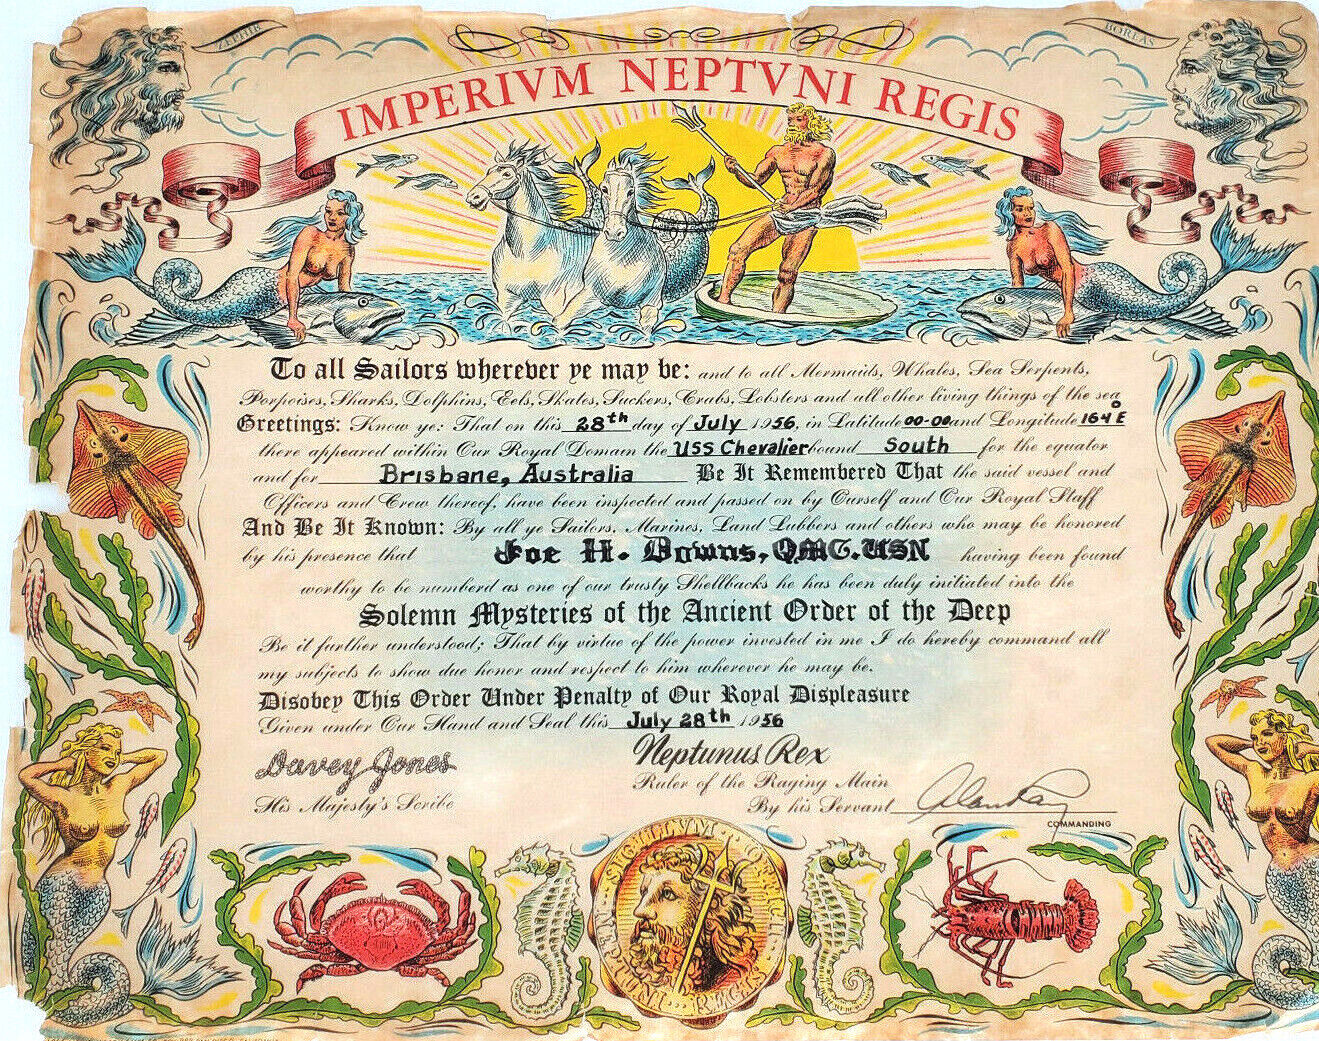 ZEPHIR
BOREAS
IMPERIVM NEPTVNI REGIS
To all Sailors wherever ye may be: and to all Mermaids, Whales, Sea Serpents,
Porpoises, Sharks, Dolphins, Eels, Skates, Suckers, Crabs, Lobsters and all other living things of the sea
Greetings: Know ye: That on this 28th day of July 1956, in Latitude 00-00 and Longitude 164° E
there appeared within Our Royal Domain the USS Chevalier bound South for the equator
and for Brisbane, Australia Be It Remembered That the said vessel and
Officers and Crew thereof, have been inspected and passed on by Ourself and Our Royal Staff
And Be It Known: By all ye Sailors, Marines, Land Lubbers and others who may be honored
by his presence that Joe H. Downs, QMC, USN having been found
worthy to be numberd as one of our trusty Shellbacks he has been duly initiated into the
Solemn Mysteries of the Ancient Order of the Deep
Be it further understood; That by virtue of the power invested in me I do hereby command all
my subjects to show due honor and respect to him wherever he may be.
Disobey This Order Under Penalty of Our Royal Displeasure
Given under Our Hand and Seal this July 28th 1956
Davey Jones
His Majesty's Scribe
Neptunus Rex
Ruler of the Raging Main
By his Servant
COMMANDING
SIGILLUM
REGIS